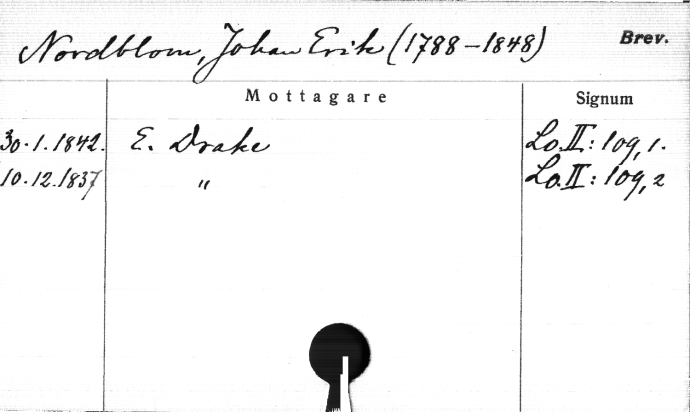 Nordblom, Johan Erik (1788-1848) Brev.
Mottagare Signum
30.1.1842. E. Drake Lo.II: 109,1.
10.12.1837 " Lo.II: 109,2